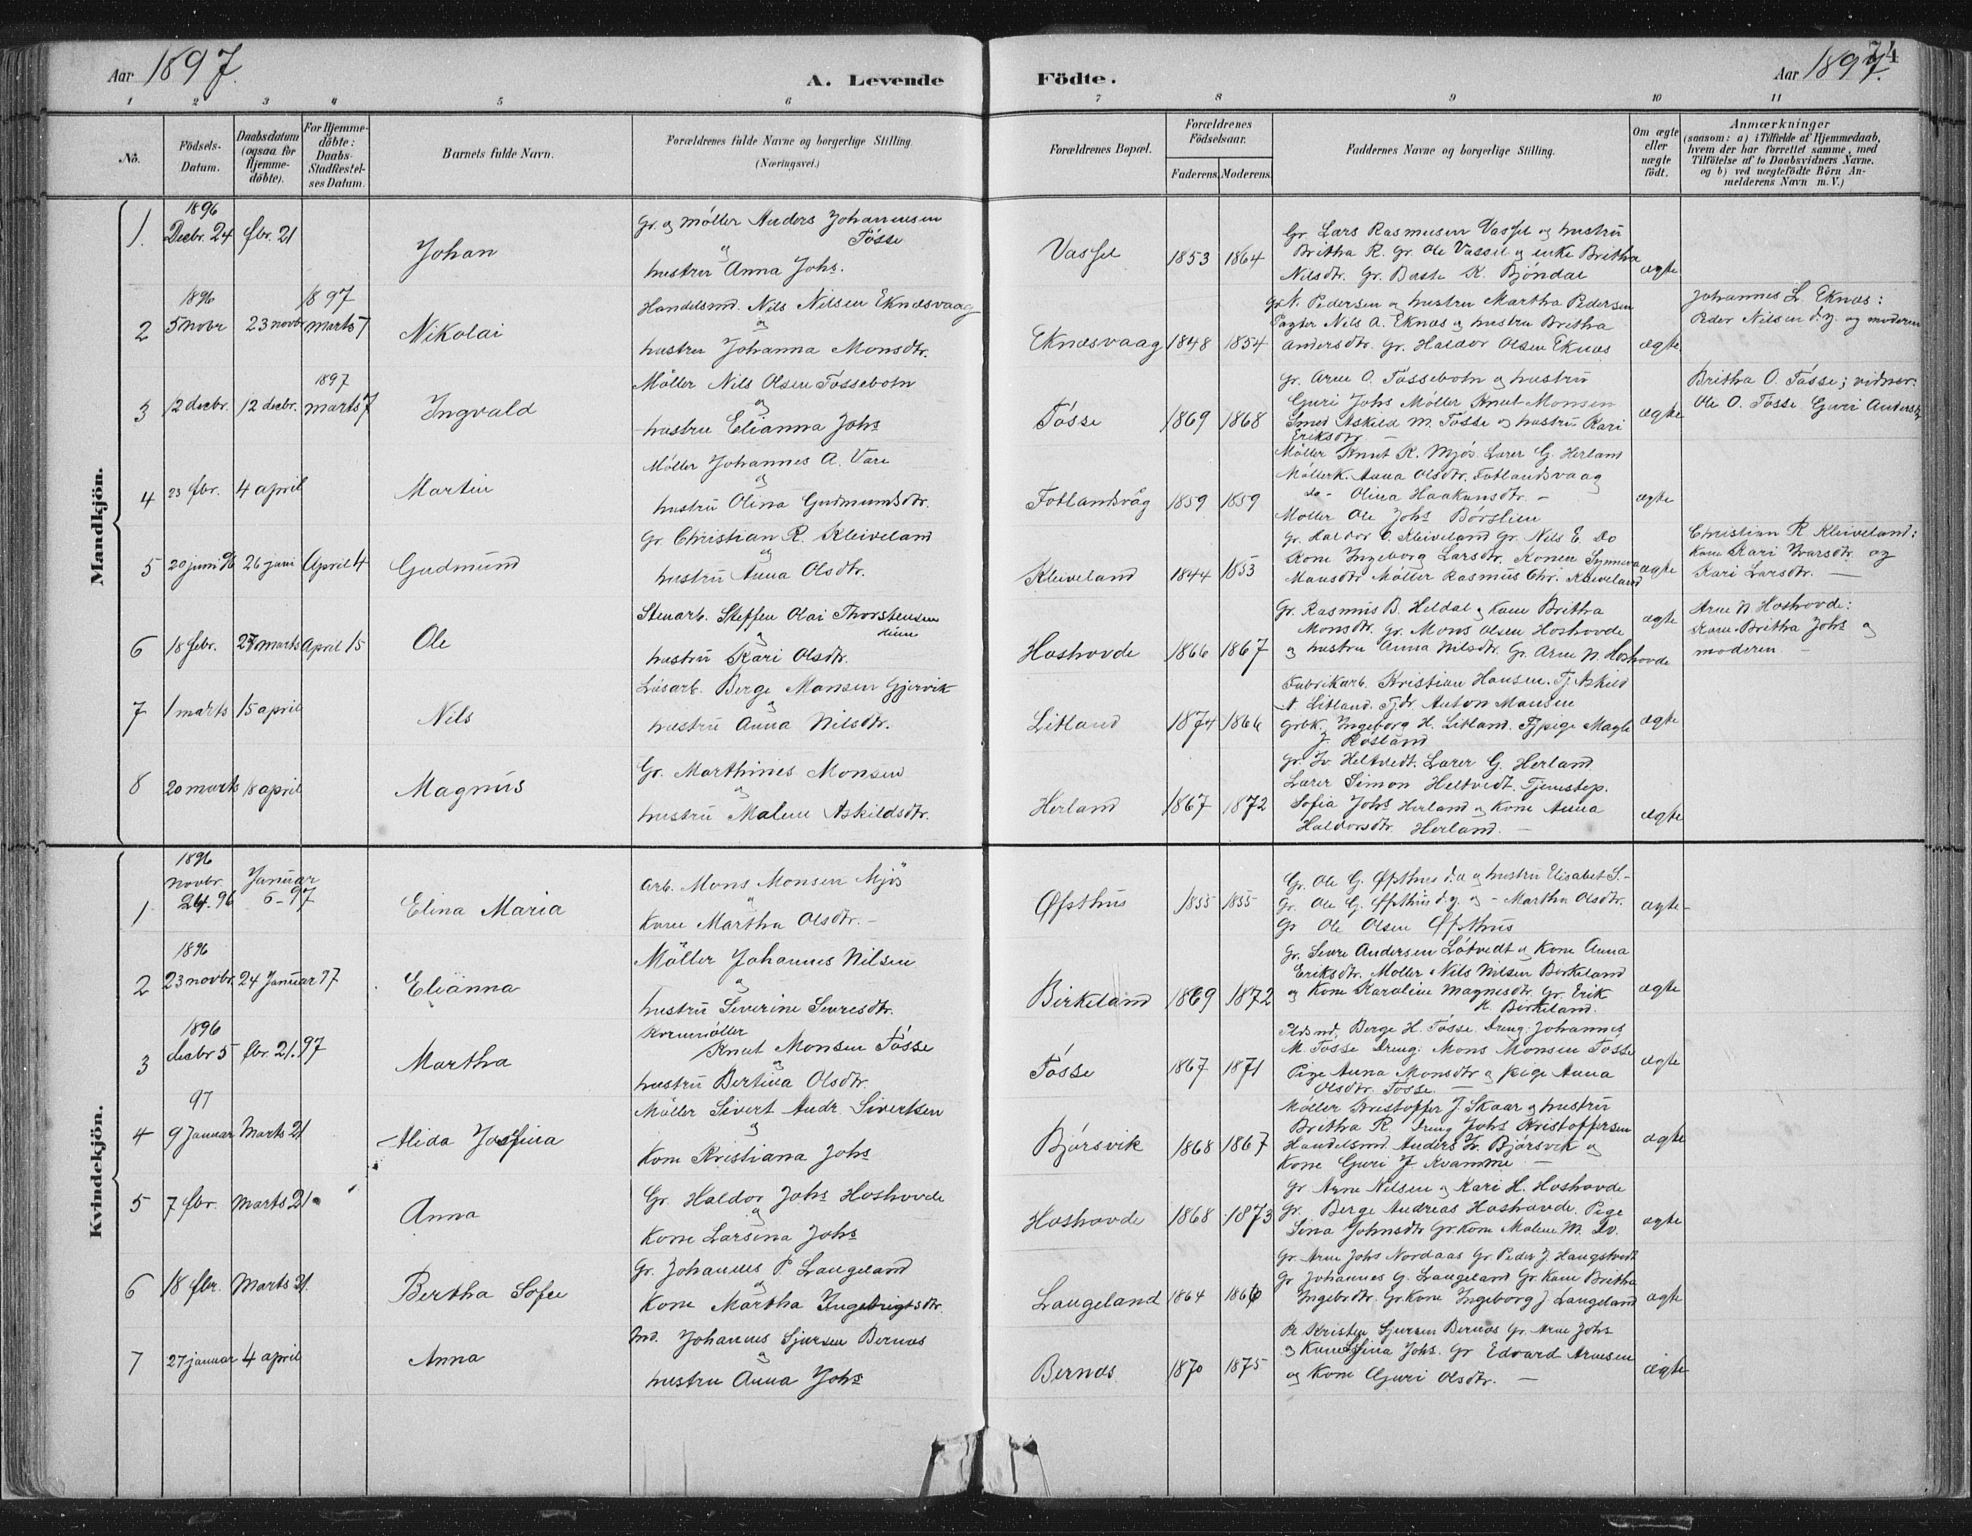 Aar 1897.
A. Levende Födte.
Aar 1897.
74
1 2 3 4 5 6 7 8 9 10 11
No.
Födsels-Datum.
Daabsdatum (ogsaa for Hjemme-döbte).
For Hjemme-döbte: Daabs-Stadfæstel-ses Datum.
Barnets fulde Navn.
Forældrenes fulde Navne og borgerlige Stilling (Næringsvei.)
Forældrenes Bopæl.
Forældrenes Födselsaar.
Faderens. Moderens.
Faddernes Navne og borgerlige Stilling.
Om ægte eller uægte födt.
Anmærkninger
(saasom: a) i Tilfælde af Hjemmedaab, hvem der har forrettet samme, med Tilföielse af to Daabsvidners Navne. og b) ved uægtefödte Börn An-melderens Navn m. V.)
Mandkjön.
1. 1896 Decbr. 24 fbr. 21 Johan
Gr. og Møller Anders Johannesen Fósse
og
hustru Anna Johs.
Vassel 1853 1864
Gr. Lars Rasmusen Vassel og hustru
Britha R. Gr. Ole Vassel og enke Britha
Nilsdtr. Gr. Baste K. Bjóndal
ægte
2 1896 5 novbr 23 novbr 1897 marts 7 Nikolai
Handelsmd. Nils Nilsen Eknæsvaag
og
hustru Johanna Monsdtr.
Eknæsvaag 1848 1854
Gr. N. Pedersen og hustru Martha Pedersen
Pagter Nils A. Eknæs og hustru Britha
Andersdtr. Gr. Haldor Olsen Eknæs
ægte
Johannes L. Eknæs:
Peder Nilsen d.y. og moderen
3 12 decbr. 12 decbr. 1897 marts 7 Ingvald
Møller Nils Olsen Fossebotn
og
hustru Elianna Johs
Fósse 1869 1868
Gr. Arne O. Fossebotn og hustru
Guri Johs Møller Knut Monsen
Smed Askild M. Fósse og hustru Kari
Eriksdtr. —
ægte
Britha O. Fósse; vidner:
Ole O. Fósse Guri Andersdtr
4 23 fbr. 4 april Martin
Møller Johannes A. Vare
og
hustru Olina Gudmundsdtr.
Fotlandsvåg 1859 1859
Møller Knut K. Mjós Lærer G. Herland
Møllerk. Anna Olsdtr. Fotlandsvaag
do - Olina Haakunsdtr. —
Moller Ole Johs Børslien
ægte
5 20 juni 96 26 juni April 4 Gudmund
Gr. Christian R. Kleiveland
og
hustru Anna Olsdtr.
Kleiveland 1844 1853
Gr. Haldor O. Kleiveland Gr. Nils E. Do
Kone Ingeborg Larsdtr. Konen Synneva
Mansdtr Møller Rasmus Chr. Kleiveland
ægte
Christian R Kleiveland:
Kone Kari Ivarsdtr og
Kari Larsdtr. —
6 18 febr. 27 marts April 15 Ole
Stenarb. Steffen Olai Thorstensen
og
hustru Kari Olsdtr.
Hoshovde 1866 1867
Gr. Rasmus B. Heldal og Kone Britha
Monsdtr. Gr. Mons Olsen Hoshovde
og hustru Anna Nilsdtr. Gr. Arne N. Hoshovde
ægte
Arne N. Hoshovde:
Kone Britha Johs og
moderen —
7 1 marts 15 april Nils
Løsarb. Berge Monsen Gjervik
og
hustru Anna Nilsdtr.
Litland 1874 1866
Fabrikarb. Kristian Hansen. Tj. Askild
A Litland. Tjdr Anton Mansen
Grbk. Ingeborg H. Litland. Tjpige Magle
J. Rosland
ægte
8 20 marts 18 april Magnus
Gr. Marthines Monsen
og
hustru Malene Askildsdtr.
Herland 1867 1872
Gr. Iv. Heltvedt. Lærer G. Herland
Lærer Simon Heltvedt. Tjenstep.
Sofia Johs Herland og Kone Anna
Haldorsdtr Herland. —
ægte
Kvindekjön.
1 1896 novbr. 24.96 Januar 6-97 Elina Maria
Arb. Mons Monsen Mjös
Kone Martha Olsdtr. —
Øfsthus 1855 1855
Gr. Ole G. Øfsthus d.æ og hustru Elisabet S.
Gr. Ole G. Øfsthus d.y. og - Martha Olsdtr.
Gr Ole Olsen Øfsthus
ægte
2 1896 23 novbr. 24 Januar 97 Elianna
Møller Johannes Nilsen
og
hustru Severine Seversdtr.
Birkeland 1869 1872
Gr. Sevre Andersen Lótvedt og Kone Anna
Eriksdtr. Moller Nils Nilsen Birkeland
og Kone Karoline Magnesdtr. Gr. Erik
K. Birkeland.
ægte
3 1896 decbr 5 fbr. 21.97 Martha
Kornmøller
Knut Monsen Fósse
og
hustru Bertina Olsdtr.
Fósse 1867 1871
Berge H. Fósse. Dreng. Johannes
M. Fósse Dreng. Mons Monsen Fósse
Pige Anna Monsdtr og pige Anna
Olsdtr. Fosse —
ægte
4 97 9 Januar Marts 21 Alida Josefina
Møller Sivert Andr. Sivertsen
og
Kone Kristiana Johs
Bjórsvik 1868 1867
Møller Kristoffer J. Skaar og hustru
Britha R. Dreng Johs Kristoffersen
Handelsmd Anders Iv. Bjórsvik og
Kone Guri J Kvamme —
ægte
5 7 fbr. Marts 21 Anna
Gr. Haldor Johs Hoshovde
og
Kone Larsina Johs
Hoshovde 1868 1873
Gr Arne Nilsen og Kari H. Hoshovde
Gr. Berge Andreas Hoshovde. Pige
Sina Johnsdtr Gr. Kone Malene M. Do.
ægte
6 18 fbr. Marts 21. Bertha Sofie
Gr. Johannes P. Langeland
og
Kone Martha Ingebrigtsdtr.
Langeland 1864 1866
Gr. Arne Johs Nordaas Gr. Peder J Haugstvedt
Gr Johannes G. Langeland Gr. Kone Britha
Ingebrdtr. Gr. Kone Ingeborg J. Langeland
ægte
7 27 januar 4 april Anna
Ind. Johannes Sjursen Bernæs
og
hustru Anna Johs
Bernæs 1870 1875
Kristen Sjursen Bernæs Gr. Arne Johs
og Kone Johs. Gr Edvard Arnesen
og Kone Guri Olsdtr. —
ægte